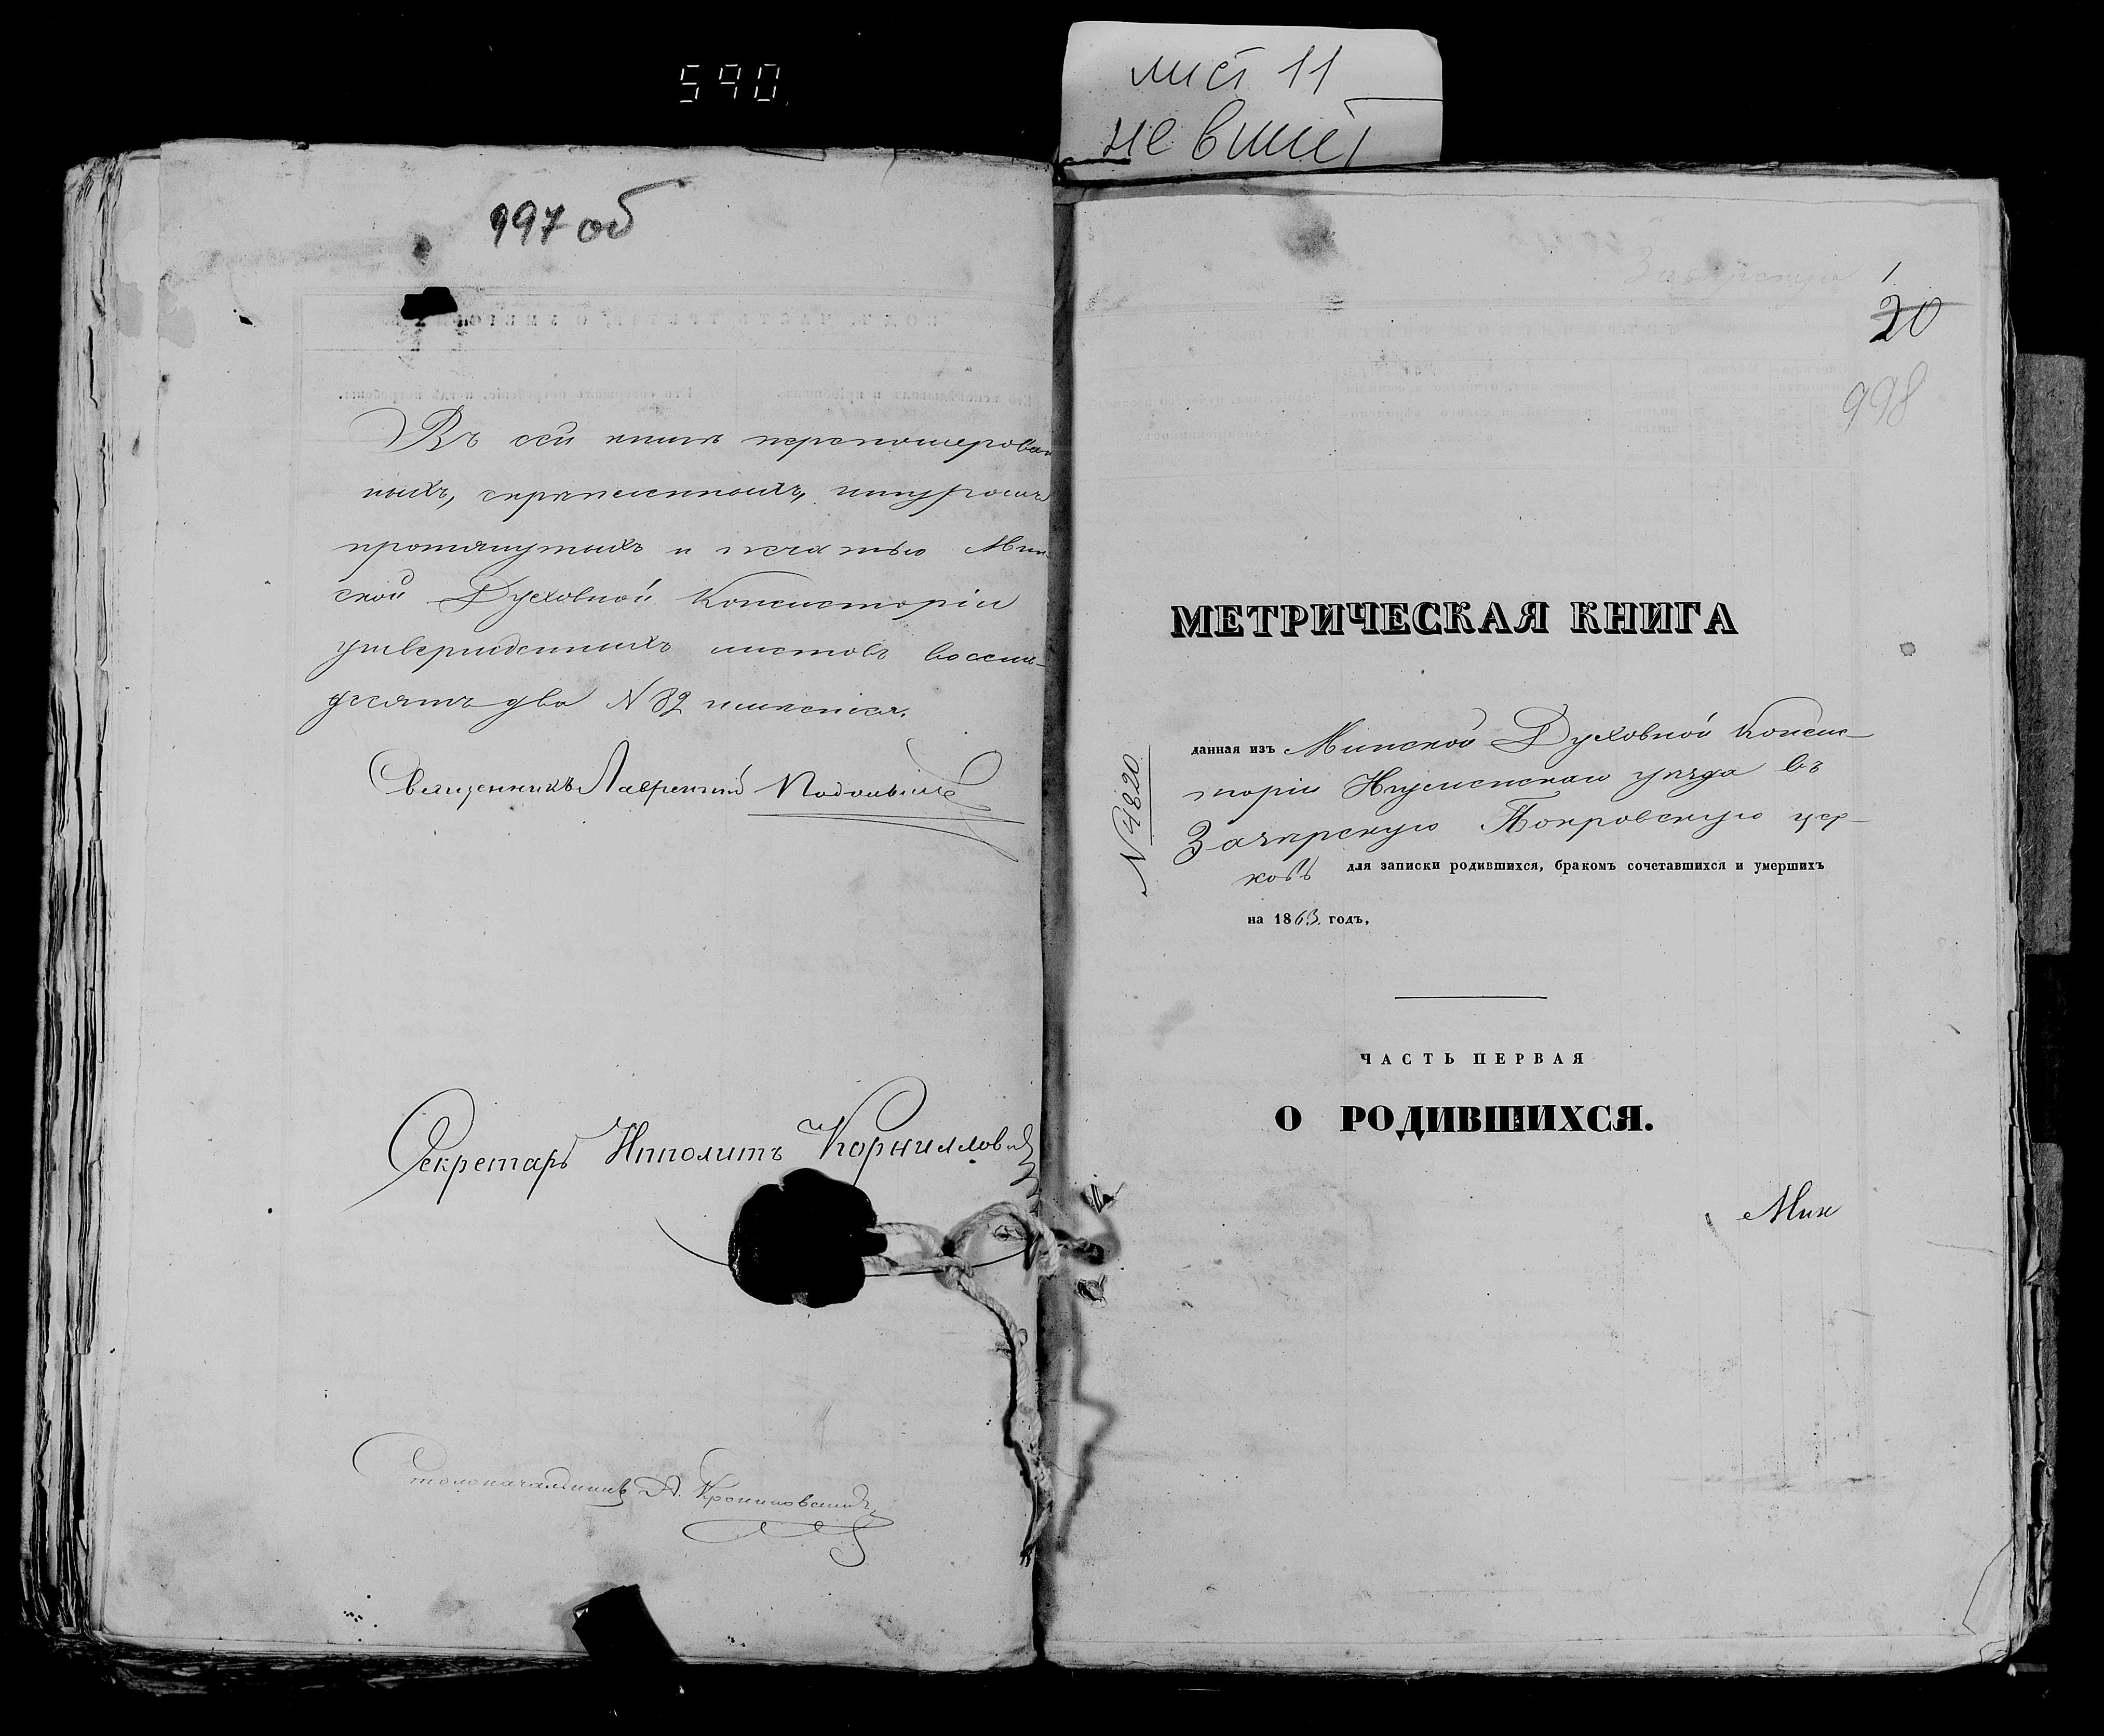 590
лист 11
не вшит
997 об
Въ сей книгѣ перенумерован
ныхъ, скрѣпленныхъ, шнуромъ
протянутыхъ и печатью Мин
ской Духовной Консисторіи
утвержденныхъ листовъ восемь-
десятъ два N 82 имѣется.
Священникъ Лаврентій
Секретарь Ипполитъ Корнилович
Столоначальникъ А.
Зазерскую
1
20
998
МЕТРИЧЕСКАЯ КНИГА
N 4820
данная изъ Минской Духовной Консис-
торіи Игуменскаго уѣзда въ
Зазерскую Покровскую цер-
ковь для записки родившихся, бракомъ сочетавшихся и умершихъ
на 1863 годъ,
ЧАСТЬ ПЕРВАЯ
О РОДИВШИХСЯ.
Мин